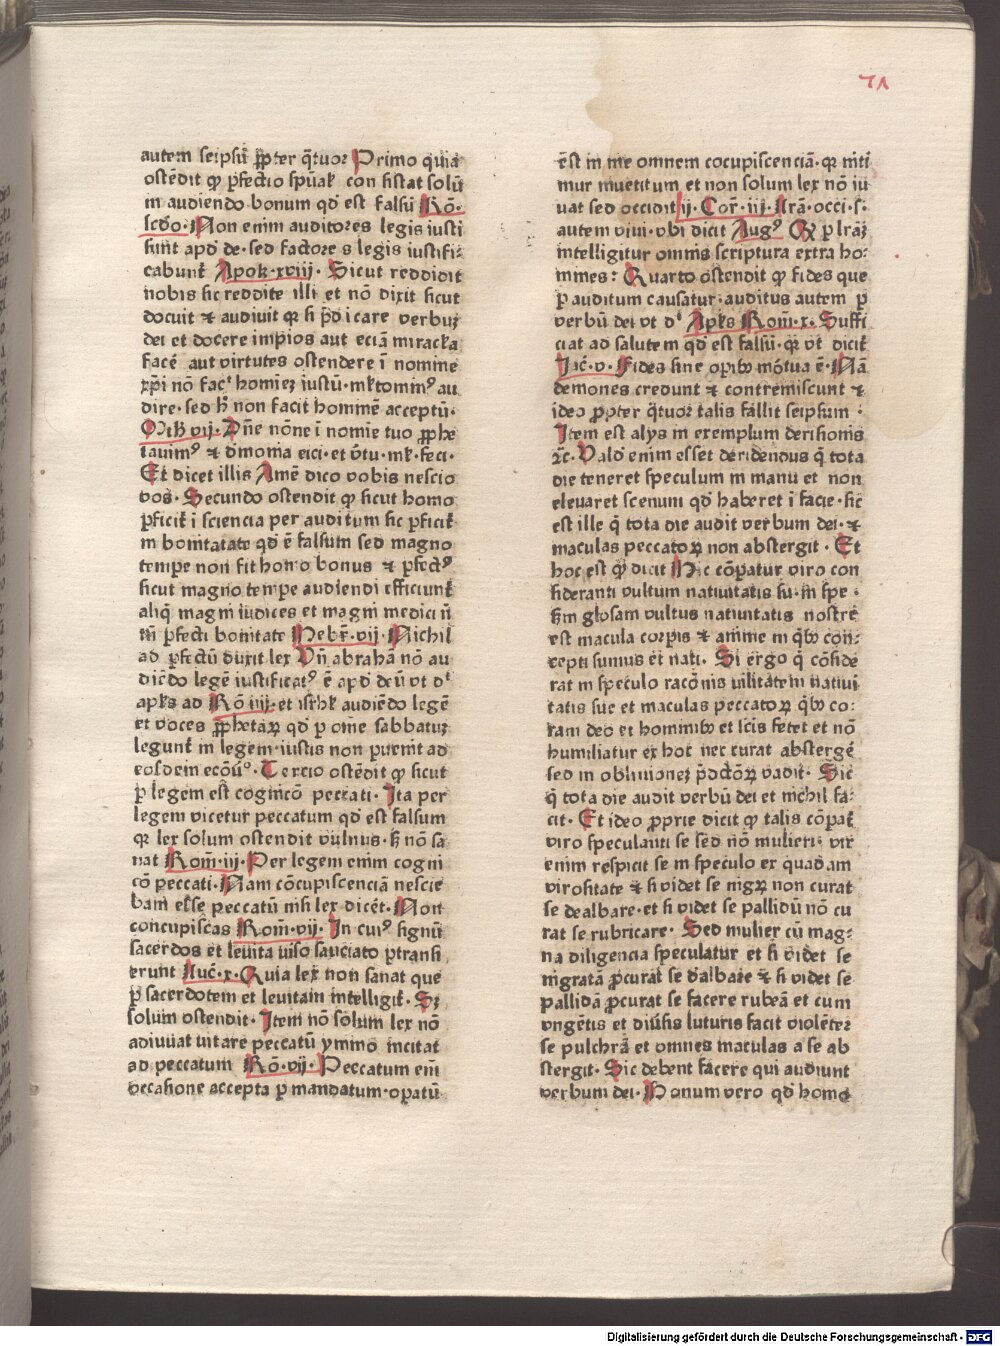 71
autem seipsū ꝓpter q̄tuor Primo quia
ostēdit ꝙ ꝑfectio spūal' con sistat solū
in audiendo bonum qd est falsū Rō·
scdo· Non enim auditores legis iusti
sunt apd de· sed factore s legis iustifi⸗
cabunt̄ Apok·xviij· Sicut reddidit
nobis sic reddite illi et nō dixit sicut
docuit ⁊ audiuit qr si p̄d icare verbuz
dei et docere impios aut eciā miracla
facē aut virtutes ostendere ī nomine
xp̄i nō fac' homiez iustū·
dire· sed non facit hominē acceptū·
Mth vij· Dn̄e nōne ī nomie tuo ꝓphe
tauimꝰ ⁊ d̄monia eici· et v̄tu· mk· feci·
Et dicet illis Amē dico vobis nescio
vos· Secundo ostendit ꝙ sicut homo
ꝑficit̄ ī sciencia per auditum sic ꝑficit̄
in bonitatate qd ē falsum sed magno
tempe non fit homo bonus ⁊ ꝑfectꝰ
sicut magno tempe audiendi efficiunt̄
aliq̄ magni iudices et magni medici n̄
tn̄ ꝑfecti bonitate Hebr̄·vij· Nichil
ad ꝑfectū duxit lex Vn̄ abrahā nō au
diēdo legē iustificatꝰ ē apd deū vt d'
apls ad Rō iiij· et isrl' audiēdo legē
et voces ꝓphetaꝝ qd ꝑ ome sabbatuz
legunt̄ in legem· iustis non puenit ad
eosdem Tercio ostēdit ꝙ sicut
ꝑ legem est cognicō peccati· Ita per
legem vicetur peccatum qd est falsum
qr lex solum ostendit vulnus· sꝫ nō sa
nat Rom̄·iij· Per legem enim cogni
cō peccati· Nam cōcupiscenciā nescie
bam esse peccatū nisi lex dicēt· Non
concupiscas Rom̄·vij· In cuiꝰ signū
sacerdos et leuita viso sauciato ꝑtransi
erunt Luc̄·x· Quia lex non sanat que
ꝑ sacerdotem et leuitam intelligit̄· Sꝫ
solum ostendit· Item nō solum lex nō
adiuuat vitare peccatū ymmo incitat
ad peccatum Rō·vij· Peccatum eni
occasione accepta ꝑ mandatum· opatū
ēst in me omnem cocupiscenciā· qr niti
mur in vetitum et non solum lex nō iu
uat sed occidit ij· Cor̄·iij· lr̄a· occi·s·
autem viui· vbi dicit Augꝰ Qꝫ ꝑ lr̄az
intelligitur omnis scriptura extra ho⸗
mines: Quarto ostendit ꝙ fides que
ꝑ auditum causatur· auditus autem ꝑ
verbū dei vt d' Apls Rom̄·x· Suffi
ciat ad salutem qd est falsū· qr vt dicit̄
Jac̄·v· Fides sine opibꝰ mōrtua ē· Nā
demones credunt ⁊ contremiscunt ⁊
ideo ꝓpter q̄tuor talis fallit seipsum ·
Item est alys in exemplum derisionis
⁊c̄· Vald enim esset deridendus q̄ tota
die teneret speculum in manu et non
eleuaret scenum qd haberet ī facie· sic
est ille q̄ tota die audit verbum dei· ⁊
maculas peccatoꝝ non abstergit · Et
hoc est qd dicit Hic cōpatur viro con
sideranti vultum natiuitatis su· in spe ·
Scdm glosam vultus natiuitatis nostre
est macula corpis ⁊ anime in qbꝰ con⸗
cepti sumus et nati· Si ergo q̄ cōside
rat in speculo racōnis vilitatem natiui
tatis sue et maculas peccatoꝝ qbꝰ co⸗
ram deo et hominibꝰ et scis fetet et nō
humiliatur ex hoc nec curat abstergē
sed in obliuionez p̄dctōꝝ vadit· Sic
q̄ tota die audit verbū dei et nichil fa⸗
cit· Et ideo ꝓprie dicit ꝙ talis cōpat̄
viro speculanti se sed nō mulieri· vir
enim respicit se in speculo ex quadam
virositate ⁊ si videt se nigrꝝ non curat
se dealbare· et si videt se pallidū nō cu
rat se rubricare· Sed mulier cū mag⸗
na diligencia speculatur et si videt se
nigratā ꝓcurat se d'albare ⁊ si videt se
pallidā ꝓcurat se facere rubeā et cum
vngētis et diuısis luturis facit violēter
se pulchrā et omnes maculas a se ab
stergit· Sic debent facere qui audiunt
verbum dei· Bonum vero qd homo
Digitalisierung gefördert durch die Deutsche Forschungsgemeinschaft - DFG